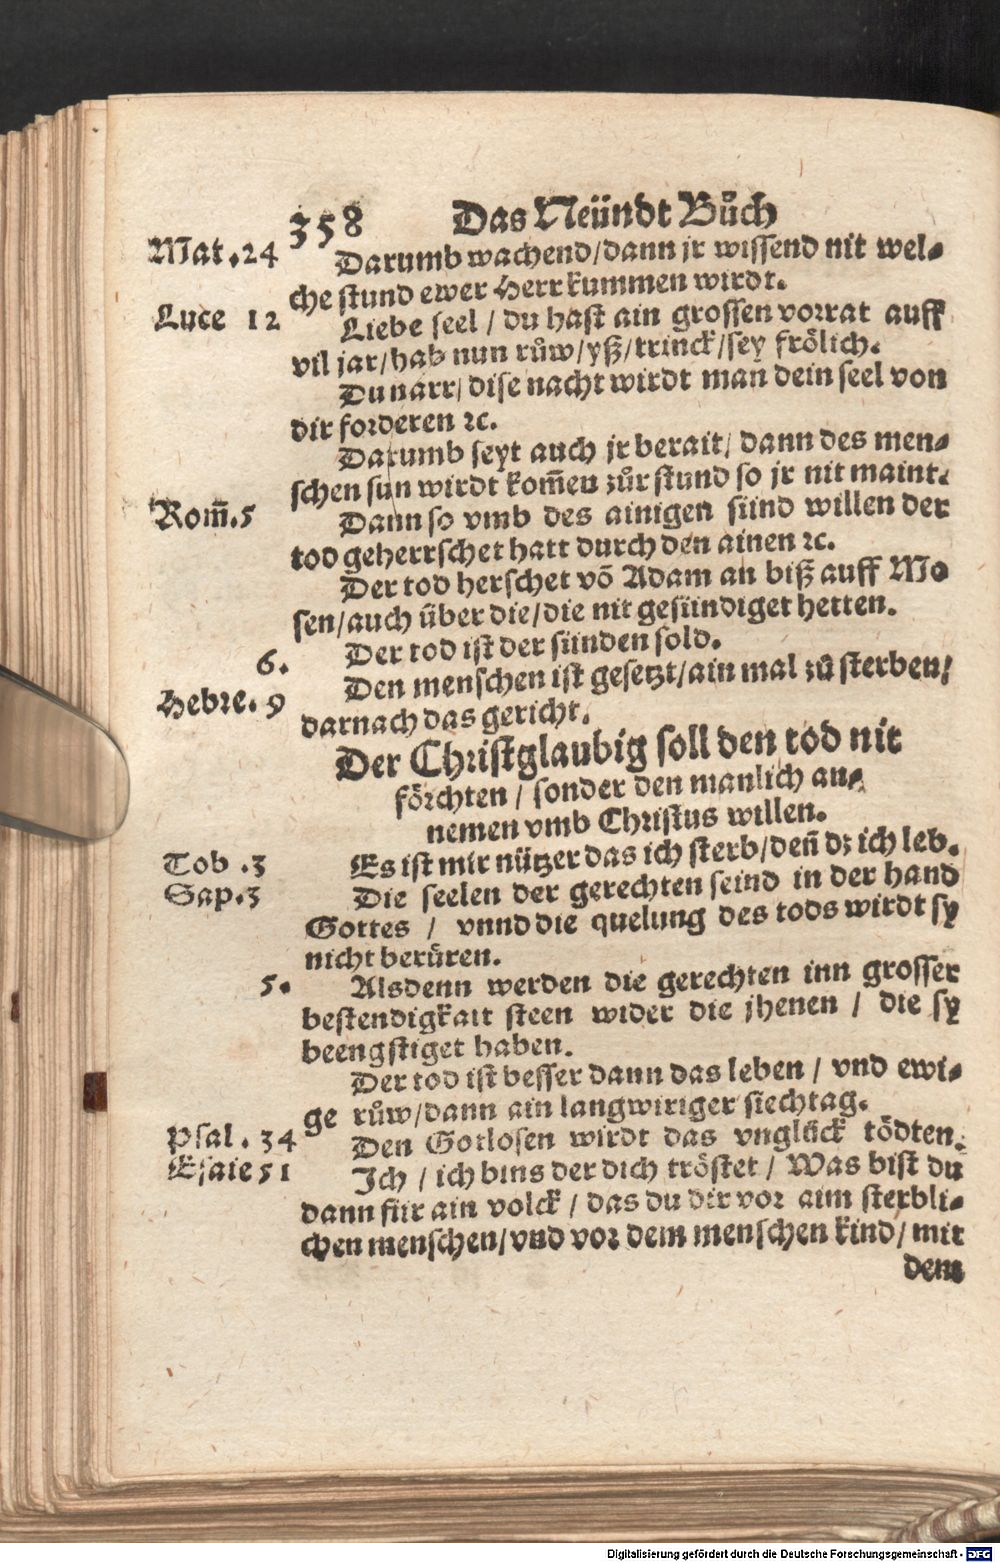 358 Das Neündt Bůch
Mat.24 Darumb wachend/dann jr wissend nit wel-
che stund ewer Herr kummen wirdt.
Luce 12 Liebe seel / du hast ain grossen vorrat auff
vil jar/hab nun růw/yß/trinck/sey frölich.
Du narr/ dise nacht wirdt man dein seel von
dir forderen ꝛc.
Darumb seyt auch jr berait/ dann des men-
schen sun wirdt kom̃en zůr stund so jr nit maint.
Rom̃.5 Dann so vmb des ainigen sünd willen der
tod geherrschet hatt durch den ainen ꝛc.
Der tod herschet võ Adam an biß auff Mo
sen/auch über die/die nit gesündiget hetten.
6. Der tod ist der sünden sold.
Hebre. 9 Den menschen ist gesetzt/ain mal zů sterben/
darnach das gericht.
Der Christglaubig soll den tod nit
förchten / sonder den manlich an-
nemen vmb Christus willen.
Tob .3 Es ist mir nützer das ich sterb/den̄ dz ich leb.
Sap.3 Die seelen der gerechten seind in der hand
Gottes / vnnd die quelung des tods wirdt sy
nicht berüren.
5. Alsdenn werden die gerechten inn grosser
bestendigkait steen wider die jhenen / die sy
beengstiget haben.
Der tod ist besser dann das leben / vnd ewi-
ge růw/dann ain langwiriger siechtag.
Psal. 34 Den Gotlosen wirdt das vnglück tödten.
Esaie 51 Ich / ich bins der dich tröstet / Was bist du
dann für ain volck / das du dir vor aim sterbli-
chen menschen/vnd vor dem menschen kind/ mit
dem
Digitalisierung gefördert durch die Deutsche Forschungsgemeinschaft - DFG